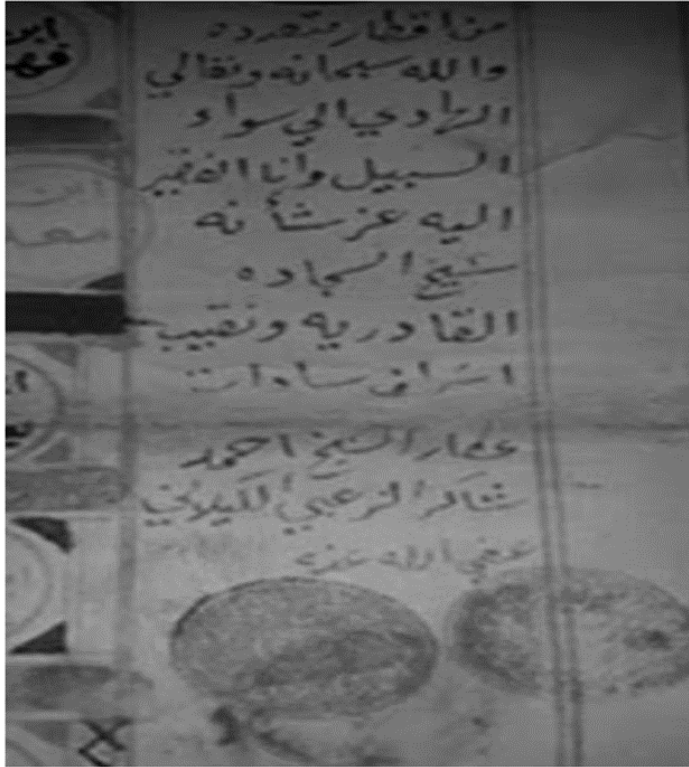 من اقطار متعدده
والله سبحانه وتعالي
الهادي الي سواء
السبيل وأنا الفقير
اليه عز شأنه
شيخ السجاده
القادريه ونقيب
اشراف سادات
عكار الشيخ احمد
شاكر الزعبي الكيلاني
عفي الله عنه
ابن